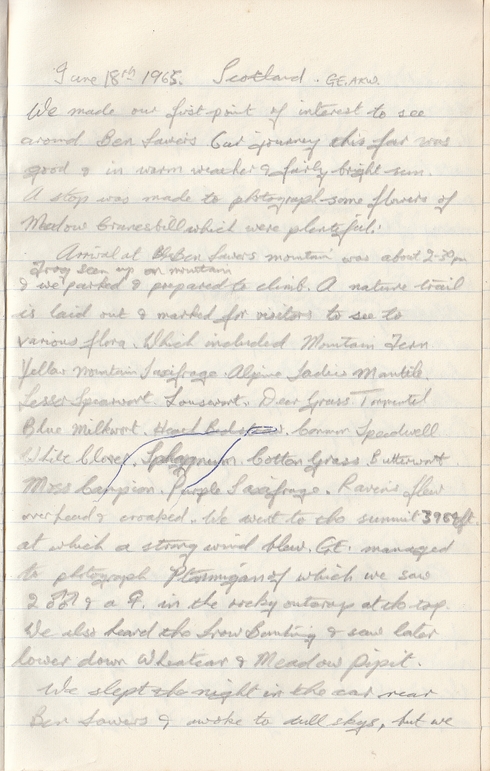 June 18th 1965. Scotland. GE. AKW.
We made our first point of interest to see
around Ben Lawers Our journey this far was
good & in warm weather & fairly bright sun.
A stop was made to photograph some flowers of
Medow Cranesbill which were plentiful.
Arrival at Ben Lawers mountain was about 2-30pm
Frog seen up on mountain
& we parked & prepared to climb. A nature trail
is laid out & marked for visitors to see to
various flora. Which included Mountain Fern
Yellow Mountain Saxifrage. Alpine Ladies Mantile.
Lesser Spearwort. Lousewort. Deer Grass. Tormentil
Blue Milkwort. Heath Bedstraw. Common Speedwell
White Clover. Sphagnum. Cotton Grass. Butterwort
Moss Campion. Purple Saxifrage. Ravens flew
overhead & croaked. We went to the summit 3984ft.
at which a strong wind blew. GE. managed
to photograph Ptarmigan of which we saw
2 ♂♂ & a ♀. in the rocky outcrop at the top.
We also heard the Snow Bunting & saw later
lower down Wheatear & Meadow Pipit.
We slept the night in the car near
Ben Lawers & awoke to dull skys, but we